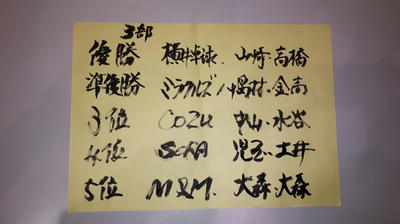 3部
優勝 横井卓球. 山崎・高橋
準優勝 ミラクルズ 岡村・金高
3位 COZU 中山・水谷
4位 SCRA 児玉・土井
5位 M&M. 大森・大森